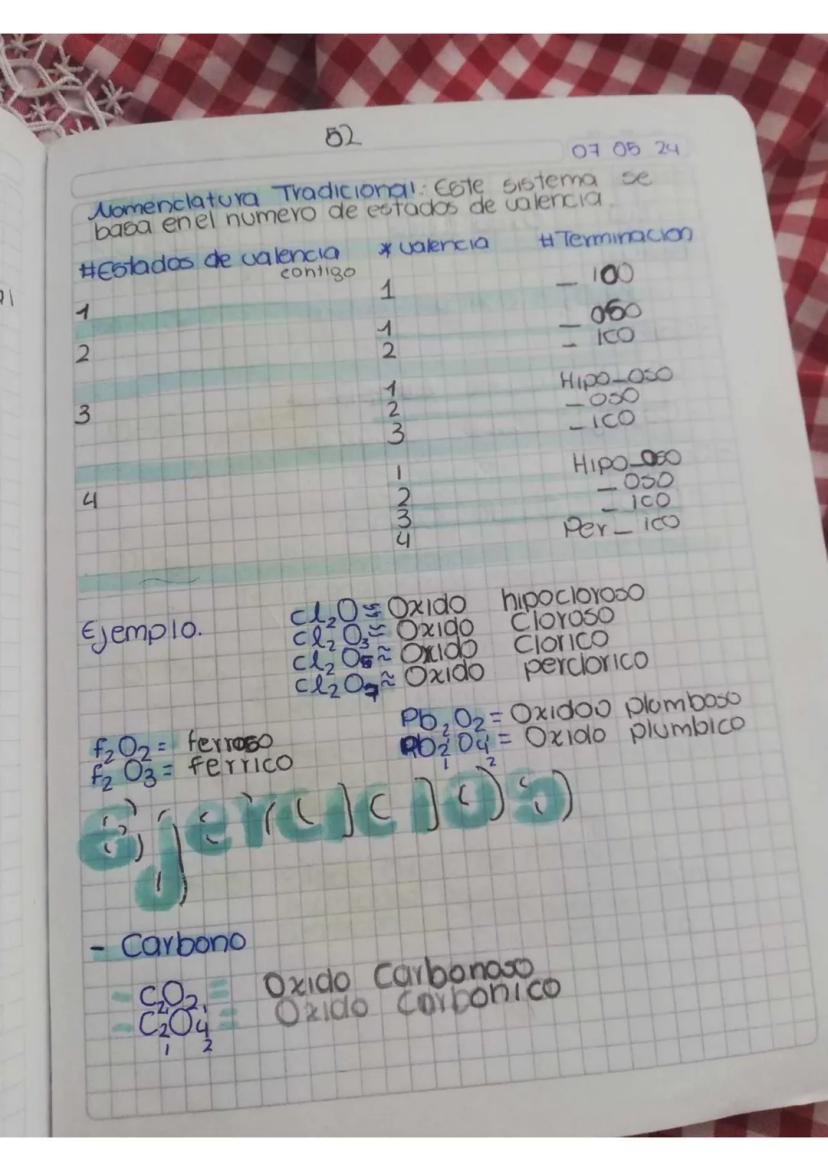 52
07 05 24
Nomenclatura Tradicional: Este sistema se
basa en el numero de estados de valencia.
#Estados de valencia * valencia # Terminacion
contigo
1 1 _ ico
2 1 _ oso
2 _ ico
3 1 Hipo_oso
2 _ oso
3 _ ico
4 1 Hipo_oso
2 _ oso
3 _ ico
4 Per_ ico
Ejemplo. Cl2O = Oxido hipocloroso
Cl2O3 = Oxido cloroso
Cl2O5 ≈ Oxido clorico
Cl2O7 ≈ Oxido perclorico
f2O2 = ferroso
f2O3 = ferrico
Pb2O2 = Oxidoo plumboso
Pb2O4 = Oxido plumbico
1 2
Ejercicios
- Carbono
- C2O2 = Oxido Carbonoso
- C2O4 = Oxido Carbonico
1 2